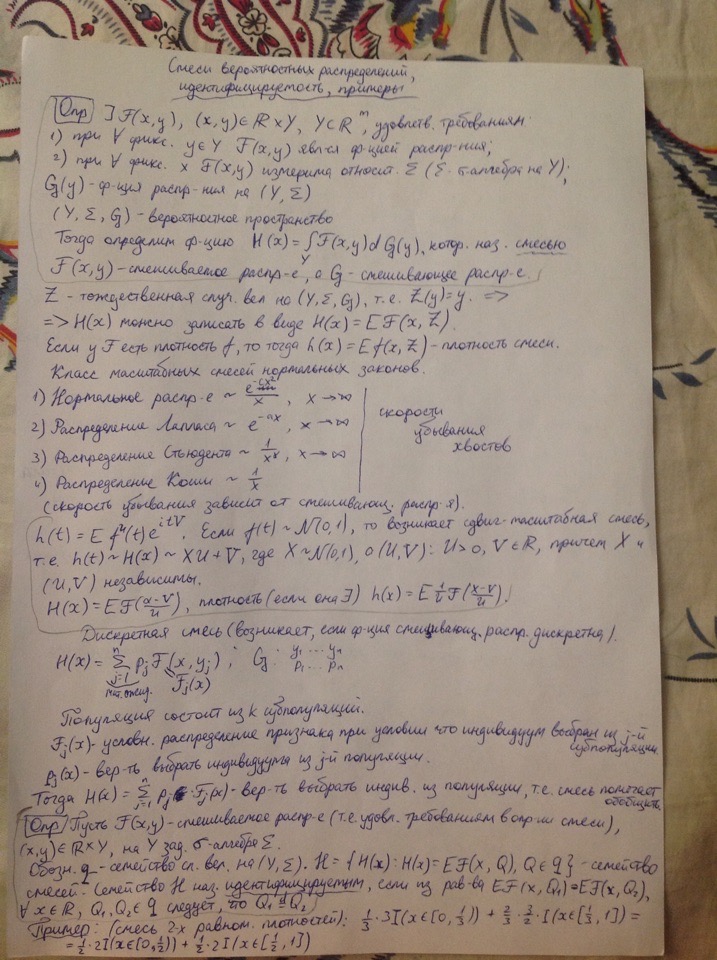 Смеси вероятностных распределений,
идентифицируемость, примеры
Опр ∃ F(x,y), (x,y)∈ℝ×Y, Y⊂ℝ^m, удовлетв. требованиям:
1) при ∀ фикс. y∈Y F(x,y) явл-ся ф-цией распр-ния;
2) при ∀ фикс. x F(x,y) измерима относит. Σ (Σ - σ-алгебра на Y);
G(y) - ф-ция распр-ния на (Y, Σ)
(Y, Σ, G) - вероятностное пространство
Тогда определим ф-цию H(x) = ∫_Y F(x,y) d G(y), котор. наз. смесью
F(x,y) - смешиваемое распр-е, а G - смешивающее распр-е.
Z - тождественная случ. вел на (Y, Σ, G), т.е. Z(y)=y. =>
=> H(x) можно записать в виде H(x) = E F(x, Z).
Если у F есть плотность f, то тогда h(x) = E f(x, Z) - плотность смеси.
Класс масштабных смесей нормальных законов.
1) Нормальное распр-е ~ , x→∞
2) Распределение Лапласа ~ e^{-ax}, x→∞
3) Распределение Стьюдента ~ 1/x^γ, x→∞
4) Распределение Коши ~ 1/x
скорости
убывания
хвостов
(скорость убывания зависит от смешивающ. распр-я).
h(t) = E f^u(t) e^{itV}. Если f(t) ~ N(0,1), то возникает сдвиг-масштабная смесь,
т.е. h(t) ~ H(x) ~ XU + V, где X~N(0,1), а (U,V): U>0, V∈ℝ, причем X и
(U,V) независимы.
H(x) = E F((x-V)/U), плотность (если она ∃) h(x) = E 1/U F((x-V)/U).
Дискретная смесь (возникает, если ф-ция смешивающ. распр. дискретна).
H(x) = Σ_{j=1}^n p_j F(x, y_j); G: y_1 ... y_n
p_1 ... p_n
мат. ожид. F_j(x)
Популяция состоит из k субпопуляций.
F_j(x) - условн. распределение признака при условии что индивидуум выбран из j-й
субпопуляции
p_j(x) - вер-ть выбрать индивидуума из j-й популяции.
Тогда H(x) = Σ_{j=1}^n p_j · F_j(x) - вер-ть выбрать индив. из популяции, т.е. смесь помогает
обобщить
Опр Пусть F(x,y) - смешиваемое распр-е (т.е. удовл. требованиям в опр-ии смеси),
(x,y)∈ℝ×Y, на Y зад. σ-алгебра Σ.
Обозн. q - семейство сл. вел. на (Y, Σ). ℋ = {H(x): H(x) = E F(x, Q), Q∈q} - семейство
смесей. Семейство ℋ наз. идентифицируемым, если из рав-ва E F(x, Q_1) = E F(x, Q_2),
∀ x∈ℝ, Q_1, Q_2 ∈ q следует, что Q_1 =^d Q_2.
Пример: (смесь 2-х равном. плотностей): 1/3 · 3I(x∈[0, 1/3)) + 2/3 · 3/2 · I(x∈[1/3, 1]) =
= 1/2 · 2I(x∈[0, 1/2)) + 1/2 · 2I(x∈[1/2, 1])